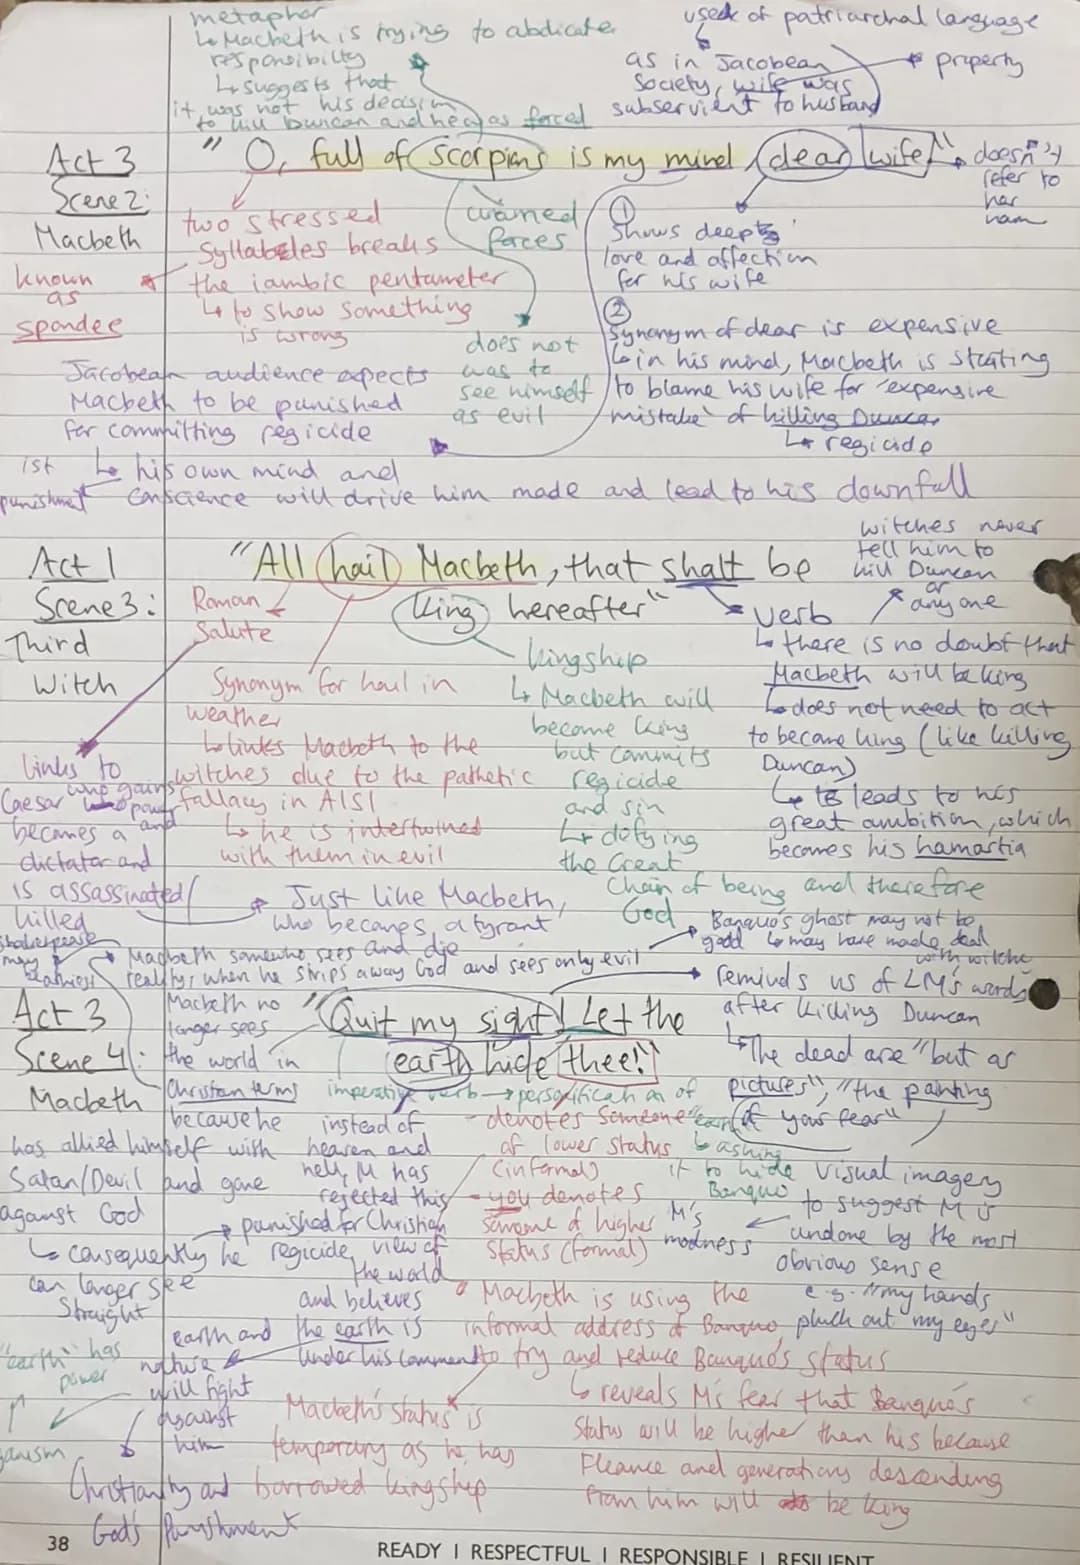 metaphor
↳ Macbeth is trying to abdicate
responsibility
↳ suggests that
it was not his decision
to kill Duncan and he was forced
used of patriarchal language
as in Jacobean
society, wife was
subservient to husband
property
Act 3
Scene 2:
Macbeth
"O, full of scorpions is my mind, dear wife"
doesn't
refer to
her
nam
two stressed
Syllables breaks
the iambic pentameter
↳ to show something
is wrong
known
as
spondee
forces
does not
was to
see himself
as evil
①
Shows deep
love and affection
for his wife
②
Synonym of dear is expensive
↳ in his mind, Macbeth is starting
to blame his wife for 'expensive
mistake' of killing Duncan
↳ regicide
Jacobean audience expects
Macbeth to be punished
for committing regicide
↳ his own mind and
conscience will drive him made and lead to his downfall
1st
punishment
Act 1
Scene 3:
Third
Witch
"All hail Macbeth, that shalt be
king hereafter"
witches never
tell him to
kill Duncan
or
anyone
Roman
Salute
Synonym for hail in
weather
↳ links Macbeth to the
witches due to the pathetic
fallacy in A1S1
↳ he is intertwined
with them in evil
kingship
↳ Macbeth will
become king
but commits
regicide
and sin
↳ defying
the Great
Chain of being and therefore
God
verb
↳ there is no doubt that
Macbeth will be king
↳ does not need to act
to became king (like killing
Duncan)
↳ leads to his
great ambition, which
becomes his hamartia
links to
Caesar who gains
power and
becomes a
dictator and
is assassinated/
killed
Just like Macbeth,
who becomes a tyrant
Banquo's ghost may not be
good ↳ may have made deal
with witche
Shakespeare
may
Macbeth somewho sees and die
reality, when he strips away God and sees only evil
Act 3
Scene 4:
Macbeth
"Quit my sight! Let the
earth hide thee!"
reminds us of LM's words
after killing Duncan
↳ The dead are "but as
pictures", "the painting
of your fear"
visual imagery
to suggest M is
undone by the most
obvious sense
e.g. "my hands
pluck out my eyes"
Macbeth no
longer sees
the world in
Christian terms
because he
has allied himself with
Satan/Devil and gone
against God
↳ consequently he
can longer see
straight
imperative verb → personification of
"earth"
↳ asking
it to hide
Banquo
M's
madness
instead of
heaven and
hell, M has
rejected this
Christian
view of
the world
and believes
the earth is
under his command
punished for
regicide
- denotes someone
of lower status
(informal)
- you denotes
someone of higher
status (formal)
Macbeth is using the
informal address of Banquo
to try and reduce Banquo's status
↳ reveals M's fear that Banquo's
status will be higher than his because
Fleance and generations descending
from him will be king
Macbeth's status is
temporary as he has
borrowed kingship
earth and
nature
will fight
against
him
"earth" has
power
Christianity and
God's Punishment
38
READY | RESPECTFUL | RESPONSIBLE | RESILIENT